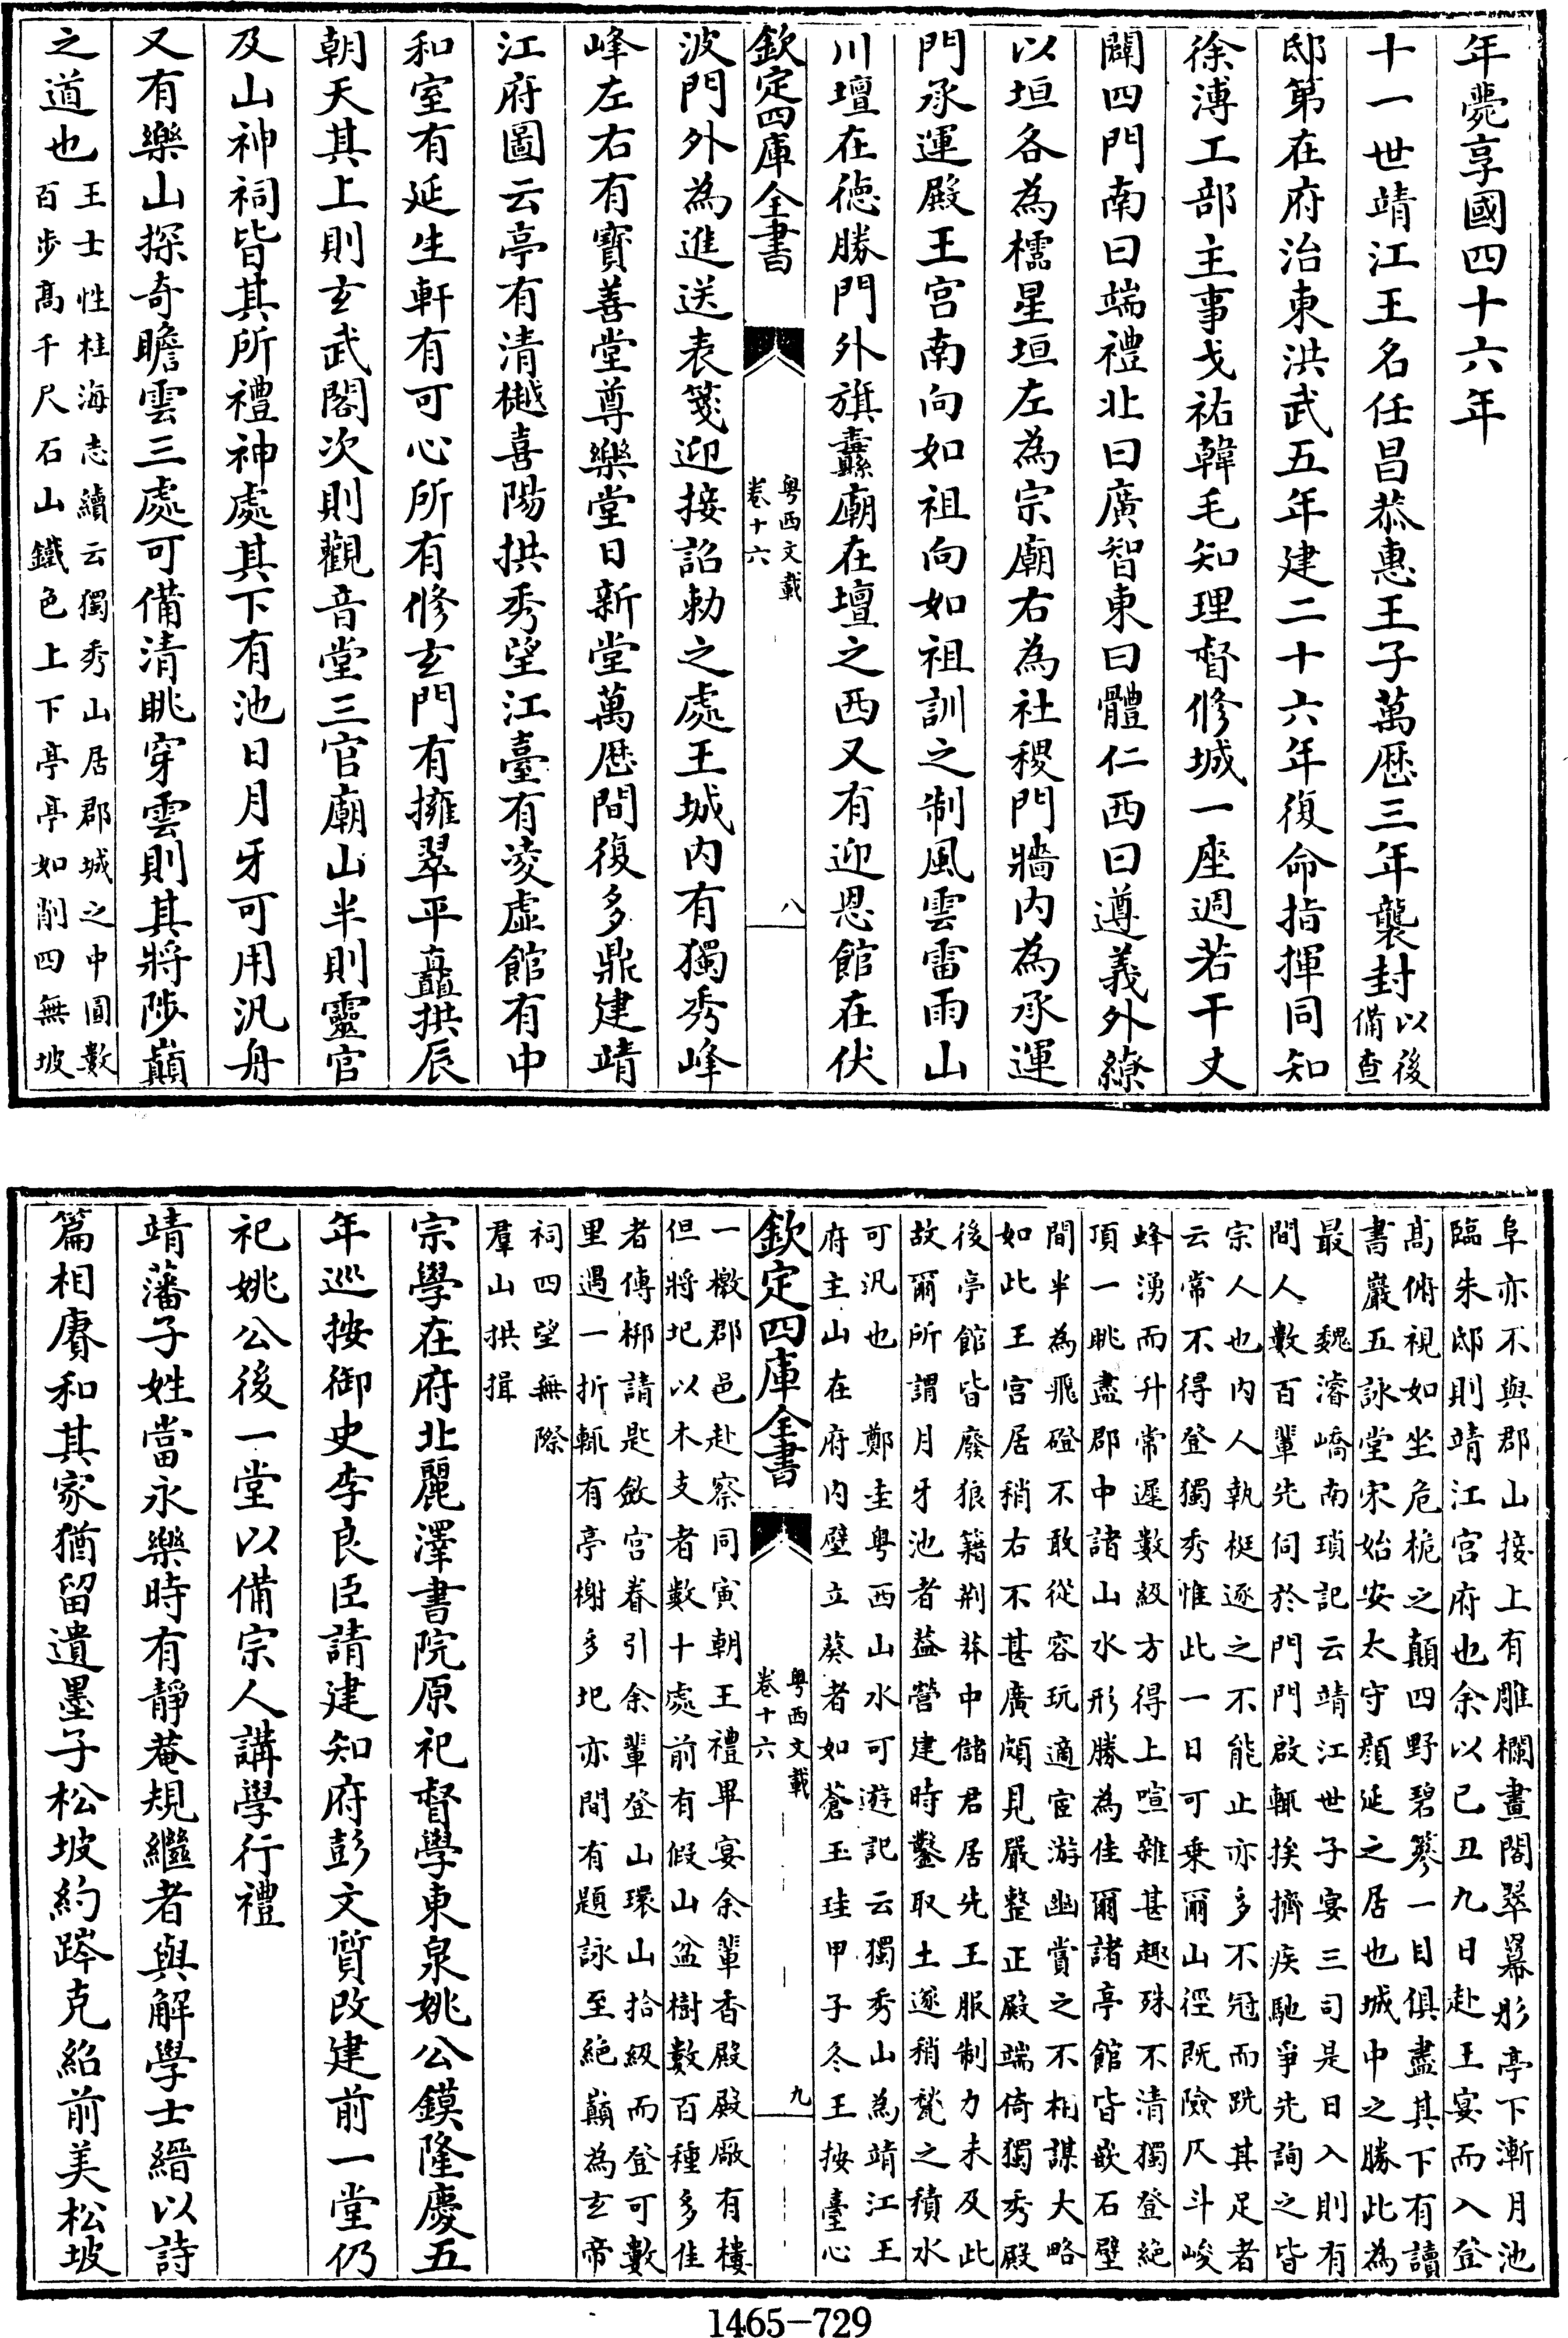 年薨享國四十六年
十一世靖江王名任昌恭惠王子萬歴三年襲封以後
備查
邸第在府治東洪武五年建二十六年復命指揮同知
徐溥工部主事戈祐韓毛知理督修城一座週若干丈
闢四門南曰端禮北曰廣智東曰體仁西曰遵義外繚
以垣各為櫺星垣左為宗廟右為社稷門牆内為承運
門承運殿王宫南向如祖向如祖訓之制風雲雷雨山
川壇在徳勝門外旗纛廟在壇之西又有迎恩館在伏
欽定四庫全書
粤西文載
卷十六
八
波門外為進送表箋迎接詔勅之處王城内有獨秀峰
峰左右有寳善堂尊樂堂日新堂萬歴間復多鼎建靖
江府圖云亭有清樾喜陽拱秀望江臺有凌虚館有中
和室有延生軒有可心所有修玄門有擁翠平矗拱辰
朝天其上則玄武閣次則觀音堂三官廟山半則靈官
及山神祠皆其所禮神處其下有池曰月牙可用汎舟
又有樂山探奇瞻雲三處可備清眺穿雲則其將陟巔
之道也王士性桂海志續云獨秀山居郡城之中圓數
百步髙千尺石山鐵色上下亭亭如削四無坡
阜亦不與郡山接上有雕欄畫閣翠幕彤亭下漸月池
臨朱邸則靖江宫府也余以己丑九日赴王宴而入登
髙俯視如坐危桅之顛四野碧簪一目俱盡其下有讀
書巖五詠堂宋始安太守顔延之居也城中之勝此為
最　魏濬嶠南瑣記云靖江世子宴三司是日入則有
間人數百輩先伺於門門啟輒挨擠疾馳爭先詢之皆
宗人也内人執梃逐之不能止亦多不冠而跣其足者
云常不得登獨秀惟此一日可乗爾山徑既險仄斗峻
蜂湧而升常遲數級方得上喧雜甚趣殊不清獨登絶
頂一眺盡郡中諸山水形勝為佳爾諸亭館皆嵌石壁
間半為飛磴不敢從容玩適宦游幽賞之不相謀大略
如此王宫居稍右不甚廣頗見嚴整正殿端倚獨秀殿
後亭館皆廢狼籍荆莽中儲君居先王服制力未及此
故爾所謂月牙池者葢營建時鑿取土遂稍甃之積水
可汎也　鄭圭粤西山水可遊記云獨秀山為靖江王
府主山在府内壁立葵者如蒼玉珪甲子冬王按臺心
欽定四庫全書
粤西文載
卷十六
九
一檄郡邑赴察同寅朝王禮畢宴余輩香殿殿厰有樓
但將圮以木支者數十處前有假山盆樹數百種多佳
者傅梆請匙斂宫眷引余輩登山環山拾級而登可數
里遇一折輒有亭榭多圮亦間有題詠至絶巔為玄帝
祠四望無際
羣山拱揖
宗學在府北麗澤書院原祀督學東泉姚公鏌隆慶五
年巡按御史李良臣請建知府彭文質改建前一堂仍
祀姚公後一堂以備宗人講學行禮
靖藩子姓當永樂時有静菴規繼者與解學士縉以詩
篇相賡和其家猶留遺墨子松坡約跨克紹前美松坡
1465-729